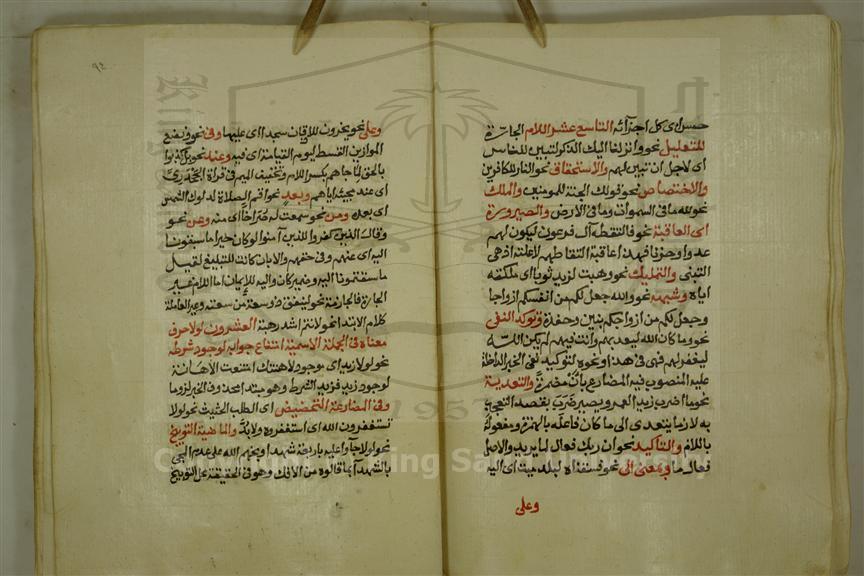 حسن اى كل اجزآئه التاسع عشر اللام الجارّة
للتعليل نحو وانزلنا اليك الذكر لتبين للناس
اى لاجل ان تبين لهم والاستحقاق نحو النار للكافرين
والاختصاص نحو قولك الجنة للمومنين والملك
نحو لله ما فى السموات وما فى الارض والصيرورة
اى العاقبة نحو فالتقطه آل فرعون ليكون لهم
عدوا وحزنا فهذا عاقبة التقاطهم لا علته اذ هى
التبنى والتمليك نحو وهبت لزيد ثوبا اى ملكته
اياه وشبهه نحو والله جعل لكم من انفسكم ازواجا
وجعل لكم من ازواجكم بنين وحفدة وتوكيد النفى
نحو وما كان الله ليعذبهم وانت فيهم لم يكن الله
ليغفر لهم فهى فى هذا ونحوه لتوكيد نفى الخبر الداخلة
عليه المنصوب فيه المضارع بان مضمرة والتعدية
نحو ما اضرب زيد العمرو ويصير ضرب بقصد التعجب
به لازما يتعدى الى ما كان فاعله بالهمزة ومفعوله
باللام والتاكيد نحو ان ربك فعال لما يريد والاصل
فعال ما وبمعنى الى نحو فسقناه لبلد ميت اى اليه
وعلى
٩٢
وعلى نحو يخرون للاذقان سجدا اى عليها وفى نحو ونضع
الموازين القسط ليوم القيامة اى فيه وعند نحو بل كذبوا
بالحق لما جاهم بكسر اللام وتخفيف الميم فى قراة الجحدرى
اى عند مجيئه اياهم وبعد نحو اقم الصلاة لدلوك الشمس
اى بعده ومن نحو سمعت له صراخا اى منه وعن نحو
وقال الذين كفروا للذين آمنوا لو كان خيرا ما سبقونا
اليه اى عنهم وفى حقهم والا بان كانت للتبليغ لقيل
ما سبقتمونا اليه وضمير كان واليه للايمان اما اللام غير
الجارة فالجازمة نحو لينفق ذو سعة من سعته وغير العاملة
كلام الابتدا نحو لانتم اشد رهبة العشرون لولا حرف
معناه فى الجملة الاسمية امتناع جوابه لوجود شرطه
نحو لولا زيد اى موجود لاهنتك امتنعت الاهانة
لوجود زيد فزيد الشرط وهو مبتدا محذوف الخبر لزوما
وفى المضارعة التحضيض اى الطلب الحثيث نحو لولا
تستغفرون الله اى استغفروه ولا بدّ والماضية التوبيخ
نحو لولا جآوا عليه باربعة شهدا وبخهم الله على عدم المجى
بالشهدآ بما قالوه من الافك وهو فى الحقيقة محل التوبيخ